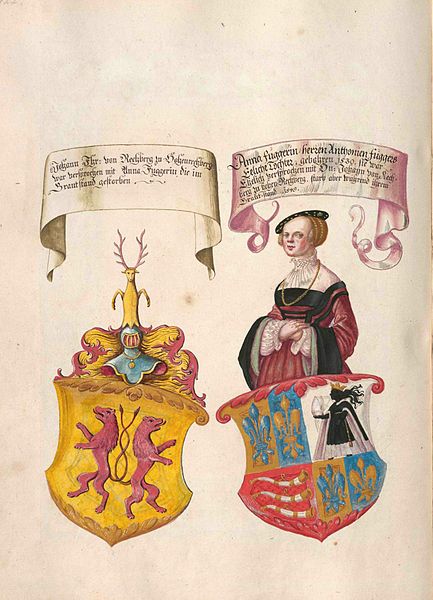 Johann Fhr: von Rechberg zu Hohenrechberg
war versprochen mit Anna Fuggerin die im
Brautstand gestorben.
Anna Fuggerin herren Anthonien Fuggers
Eeliche Tochter, gebohren 1530. ist war
Ehelich versprochen mit Hn: Johann von Rech-
berg zu hohen Rechberg, starb aber wehrend ihrem
Braut stand